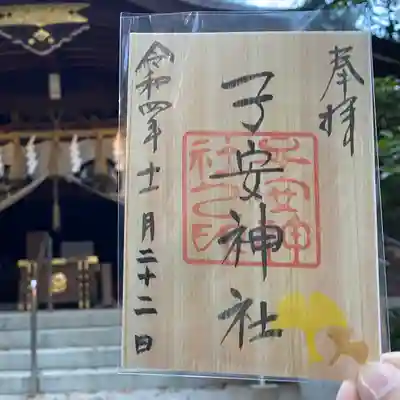 奉拝
子安神社
子安神社之印
令和四年十一月二十二日